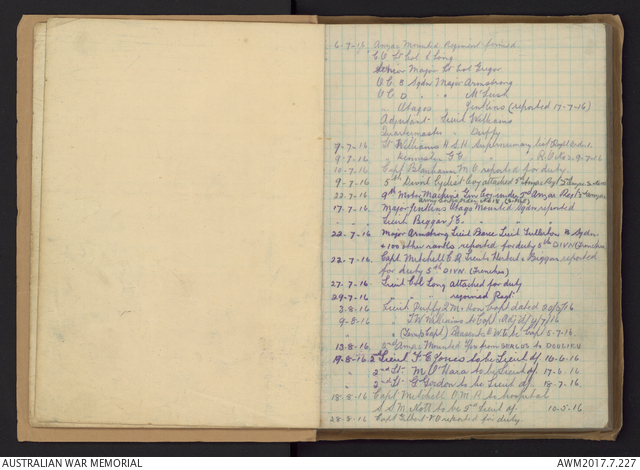 6-7-16 Anzac Mounted Regiment formed
C.O. Lt Col. Long
Senior Major Lt Col Gregor
O.C. B Sqdn Major Armstrong
O.C. D " "
" Otagos " Jenkins (reported 17-7-16)
Adjutant Lieut Williams
Quartermaster " Duffy
9-7-16 Lt Williams H.S.H. Supernumerary
9-7-16 " G.E. "
10-7-16 Capt M.C. reported for duty
9-7-16 5th Divnl Cyclist Coy attached 2nd Anzac Regt
22-7-16 9th Motor Machine Gun under 2nd Anzac Regt
17-7-16 Major Jenkins Otago Mounted Sqdn reported
" Lieut Beggar J.E. "
22-7-16 Major Armstrong Lieut Lieut Fullerton B Sqdn
+ 100 other ranks reported for duty 5th DIVN (Trenches)
22-7-16 Capt Mitchell Lieuts Herbert + Biggan reported
for duty 5th DIVN. (Trenches)
27-7-16 Lieut Col Long attached for duty
29-7-16 " rejoined Regt
3-8-16 Lieut Duffy Q.M. Hon Capt dated
9-8-16 " J.W. Williams to Capt
" (Temp Capt) to be Capt 5-7-16.
13-8-16 2nd Anzac Mounted from SERCUS to DOULIEU
19-8-16 2nd Lieut F.E. Jones to be Lieut df. 10-6-16
" 2nd Lt. M. O'Hara to be Lieut df. 17-6-16
" 2nd Lt. G Gordon to be Lieut df. 18-7-16
18-8-16 Capt Mitchell O.M.H. to hospital
S.S.M. Nott to be 2nd Lieut df. 10-5-16
28-8-16 Capt Gilbert V.O reported for duty
AUSTRALIAN WAR MEMORIAL
AWM2017.7.227